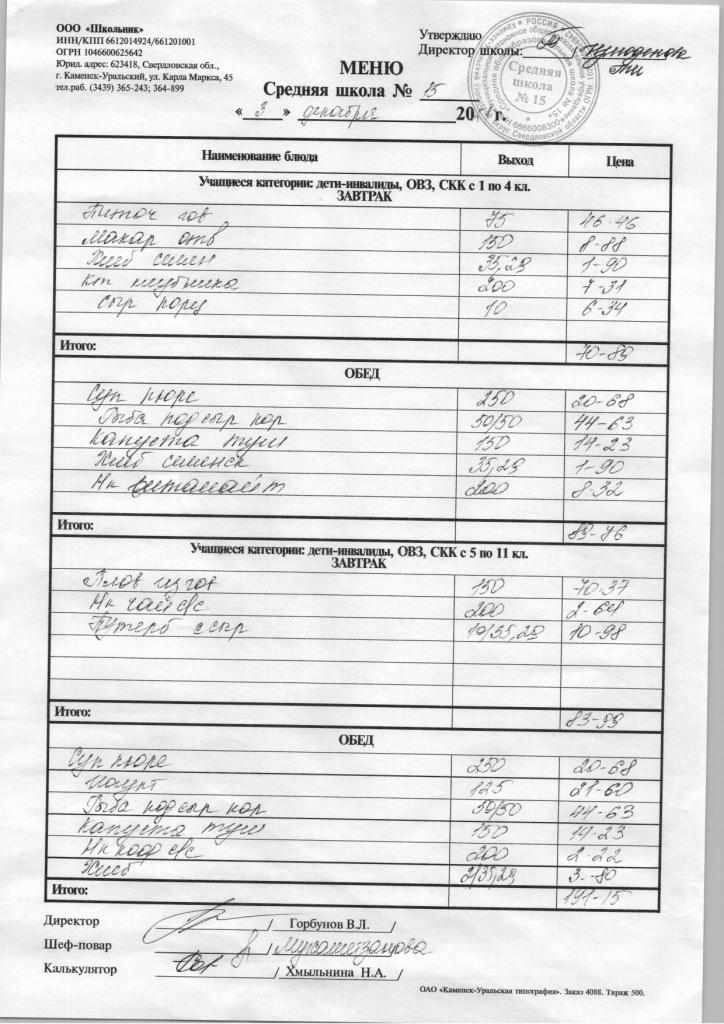 ООО «Школьник»
ИНН/КПП 6612014924/661201001
ОГРН 1046600625642
Юрид. адрес: 623418, Свердловская обл.,
г. Каменск-Уральский, ул. Карла Маркса, 45
тел.раб. (3439) 365-243; 364-899
Утверждаю
Директор школы:
Средняя школа № 15
МЕНЮ
Средняя школа № 15
« 3 » декабря 20 г.
Наименование блюда Выход Цена
Учащиеся категории: дети-инвалиды, ОВЗ, СКК с 1 по 4 кл.
ЗАВТРАК
Биточ гов 75 46-46
Макар отв 150 8-88
Хлеб 35,29 1-90
Кт клубника 200 7-31
Сыр порц 10 6-34
Итого: 70-89
ОБЕД
Суп пюре 250 20-68
Рыба под сыр кор 50/50 44-63
Капуста туш 150 14-23
Хлеб 35,29 1-90
Нк витамайт 200 8-32
Итого: 89-76
Учащиеся категории: дети-инвалиды, ОВЗ, СКК с 5 по 11 кл.
ЗАВТРАК
Плов из гов 150 70-37
Нк чай с/с 200 2-64
Бутерб с сыр 10/35,29 10-98
Итого: 83-99
ОБЕД
Суп пюре 250 20-68
Йогурт 125 21-60
Рыба под сыр кор 50/50 44-63
Капуста туш 150 14-23
Нк с/с 200 2-22
Хлеб 2/35,29 3-80
Итого:
Директор / Горбунов В.Л. /
Шеф-повар /
Калькулятор / Хмыльнина Н.А. /
ОАО «Каменск-Уральская типография». Заказ 4088. Тираж 500.